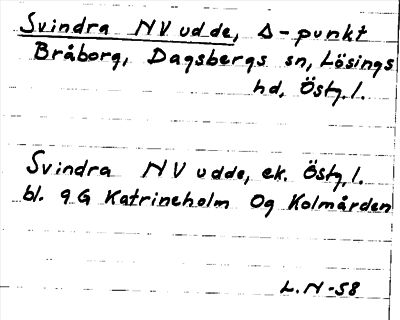 Svindra NV udde, Δ-punkt
Bråborg, Dagsbergs sn, Lösings
hd, Östg. l.
Svindra NV udde, ek. Östg. l.
bl. 9G Katrineholm 0g Kolmården
L.N-58